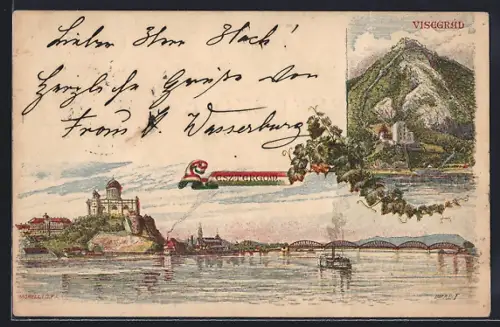 VISEGRAD
Lieber Herr Hock!
Herzliche Grüße von
Franz Wasserburg
ESZTERGOM